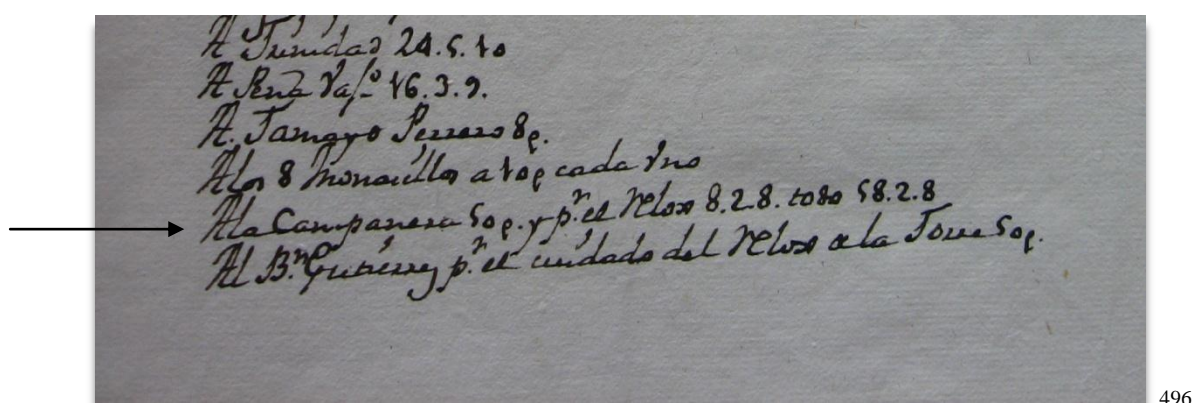 A Trinidad 24.5.10
A Peña Vas.º 16.3.9.
A. Tamayo Perrero 8 p.
A los 8 Monacillos a 10 p cada Vno
A la Campanera 50 p. y p.r el Relox 8.2.8. todo 58.2.8
Al B.r Gutierrez p.r el cuidado del Relox a la Torre 50 p.
496